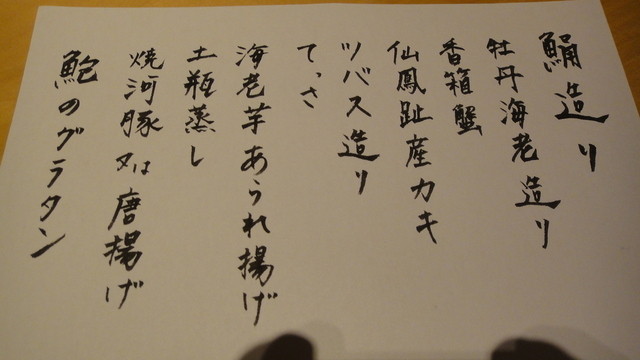 鯛造り
牡丹海老造り
香箱蟹
仙鳳趾産カキ
ツバス造り
てっさ
海老芋あられ揚げ
土瓶蒸し
焼河豚又は唐揚げ
鮑のグラタン